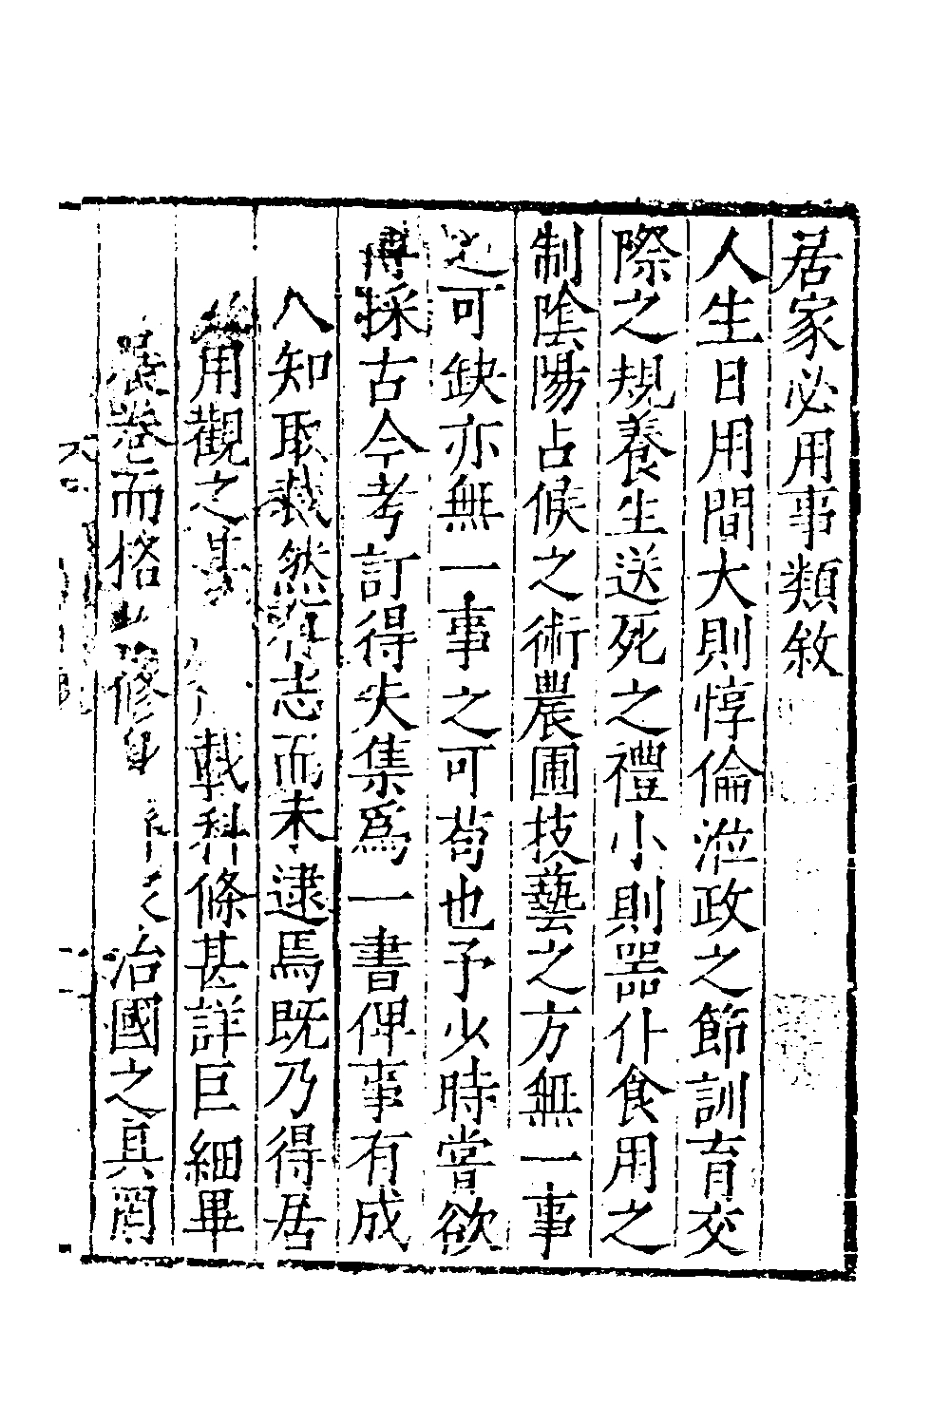 居家必用事類敘
人生日用間大則惇倫涖政之節訓育交
際之規養生送死之禮小則器什食用之
制陰陽占候之術農圃技藝之方無一事
之可缺亦無一事之可苟也予少時嘗欲
博採古今考訂得失集爲一書俾事有成
入知取裁然有志而未逮焉既乃得居
用觀之其載科條甚詳巨細畢
展卷而格修身治國之具罔